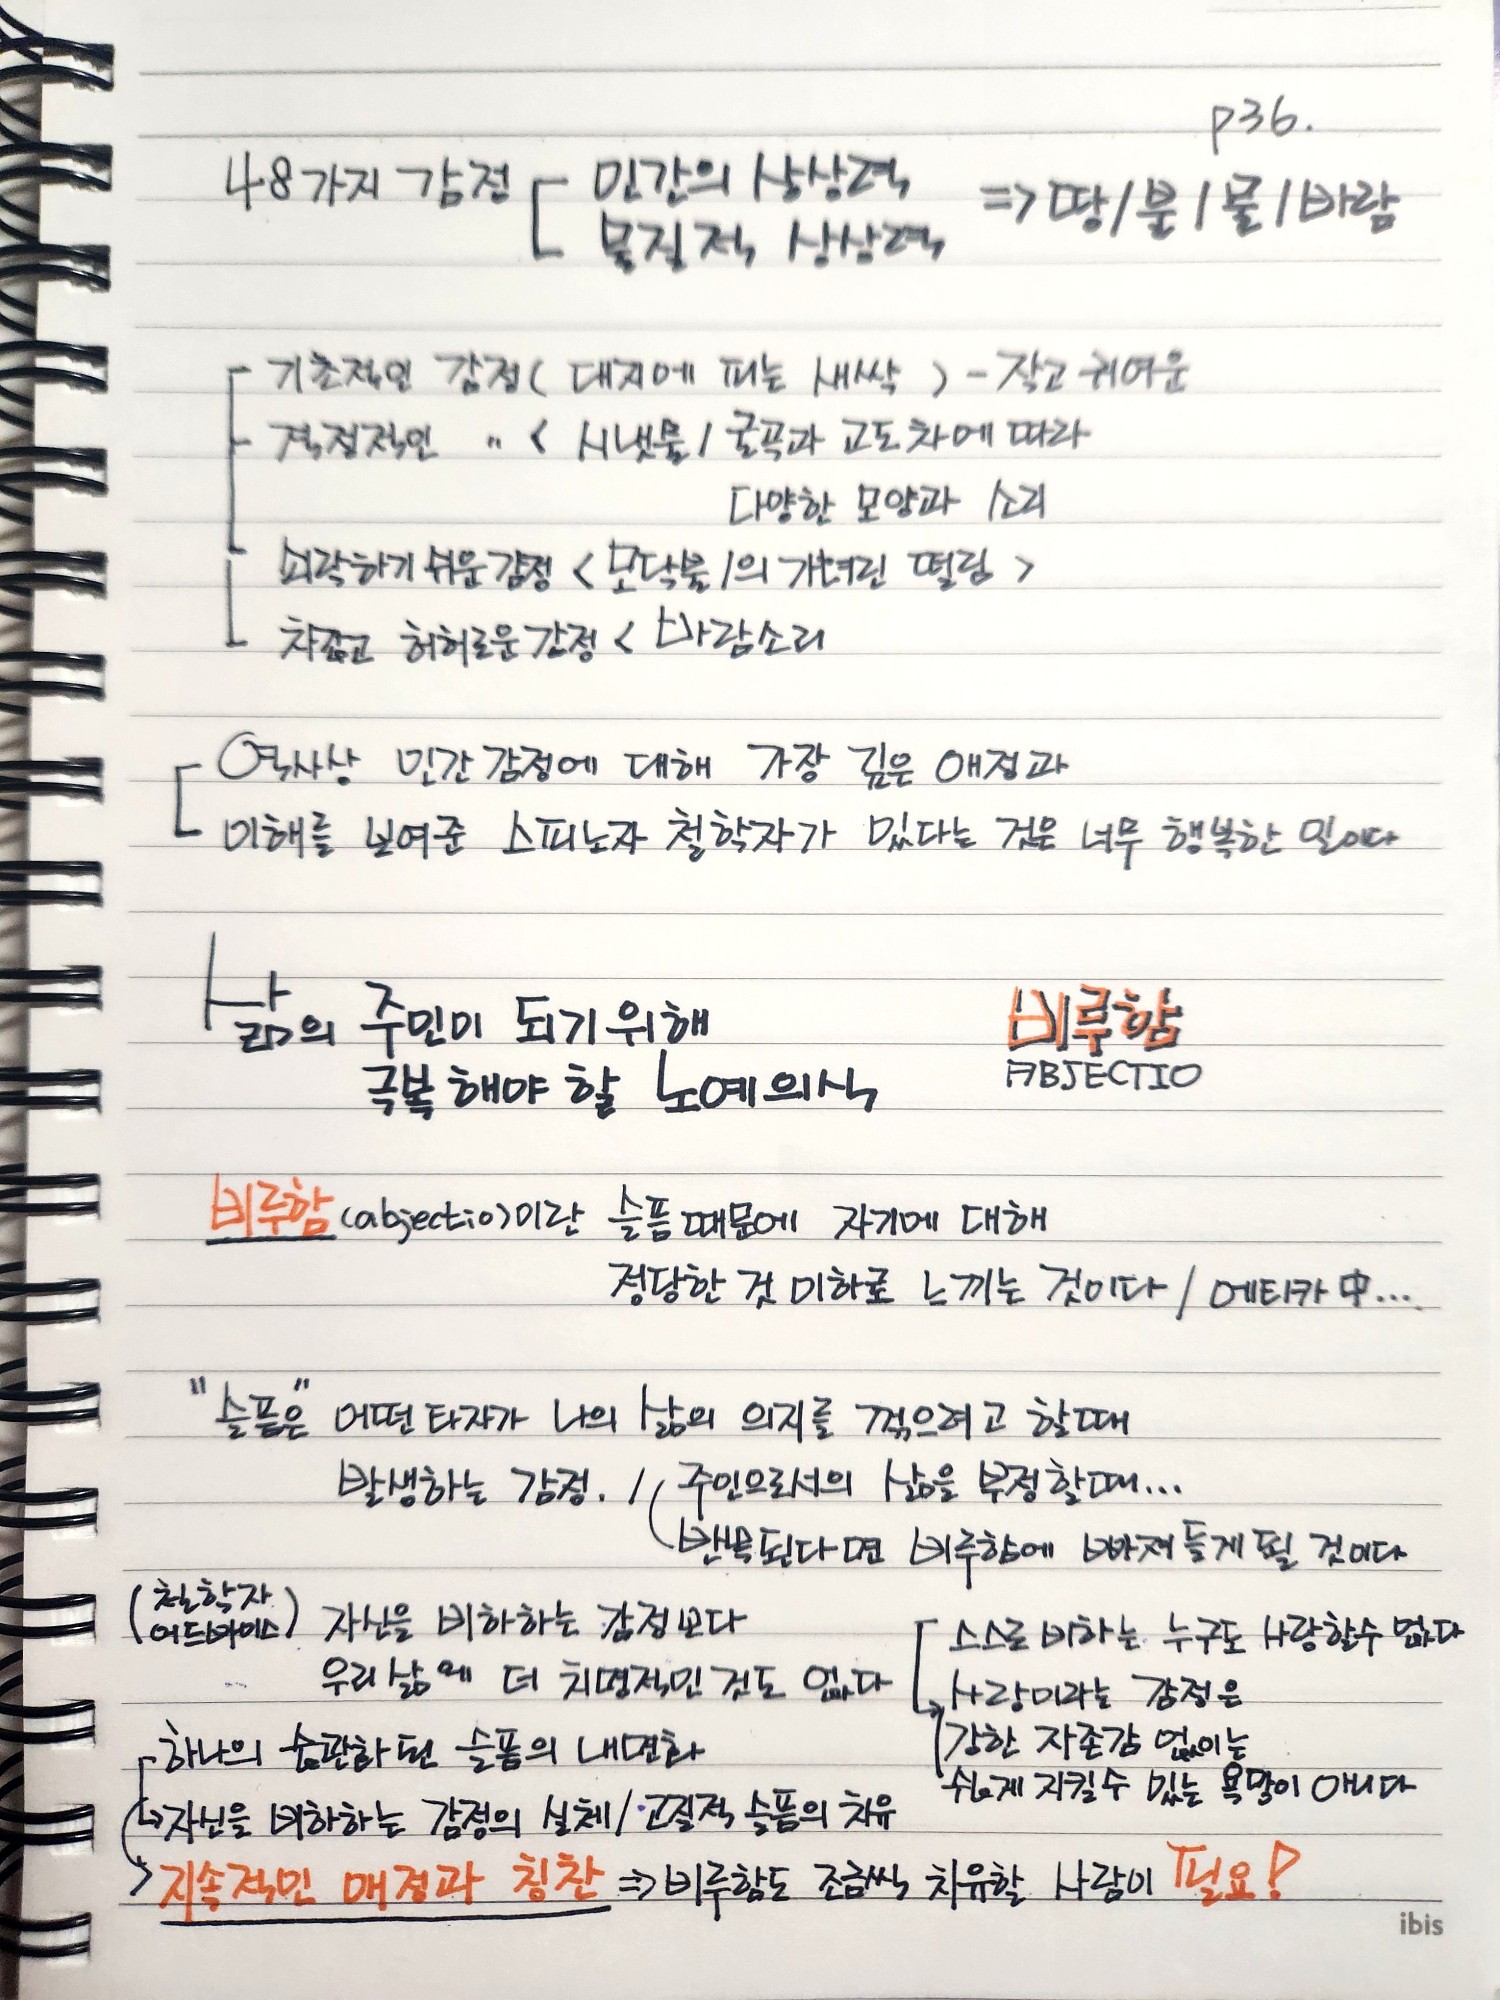 p36.
48가지 감정 인간의 상상력 => 땅/불/물/바람
물질적 상상력
기초적인 감정 ( 대지에 피는 새싹 ) - 작고 귀여운
격정적인 〃 < 시냇물 / 굴곡과 고도차에 따라
다양한 모양과 소리
쇠락하기 쉬운 감정 < 모닥불 / 의 가녀린 떨림 >
차갑고 허허로운 감정 < 바람소리
역사상 인간 감정에 대해 가장 깊은 애정과
이해를 보여준 스피노자 철학자가 있다는 것은 너무 행복한 일이다
삶의 주인이 되기 위해
극복해야 할 노예의식
비루함
ABJECTIO
비루함 (abjectio)이란 슬픔때문에 자기에 대해
정당한 것 이하로 느끼는 것이다 / 에티카 中...
"슬픔은" 어떤 타자가 나의 삶의 의지를 꺾으려고 할때
발생하는 감정. / 주인으로서의 삶을 부정할때...
반복된다면 비루함에 빠져들게 될 것이다
(철학자 어드바이스) 자신을 비하하는 감정보다
우리 삶에 더 치명적인 것도 없다
스스로 비하는 누구도 사랑할수 없다
사랑이라는 감정은
강한 자존감 없이는
쉽게 지킬수 있는 욕망이 아니다
하나의 습관화 된 슬픔의 내면화
→자신을 비하하는 감정의 실체 / 고질적 슬픔의 치유
지속적인 애정과 칭찬 => 비루함도 조금씩 치유할 사람이 필요!
ibis